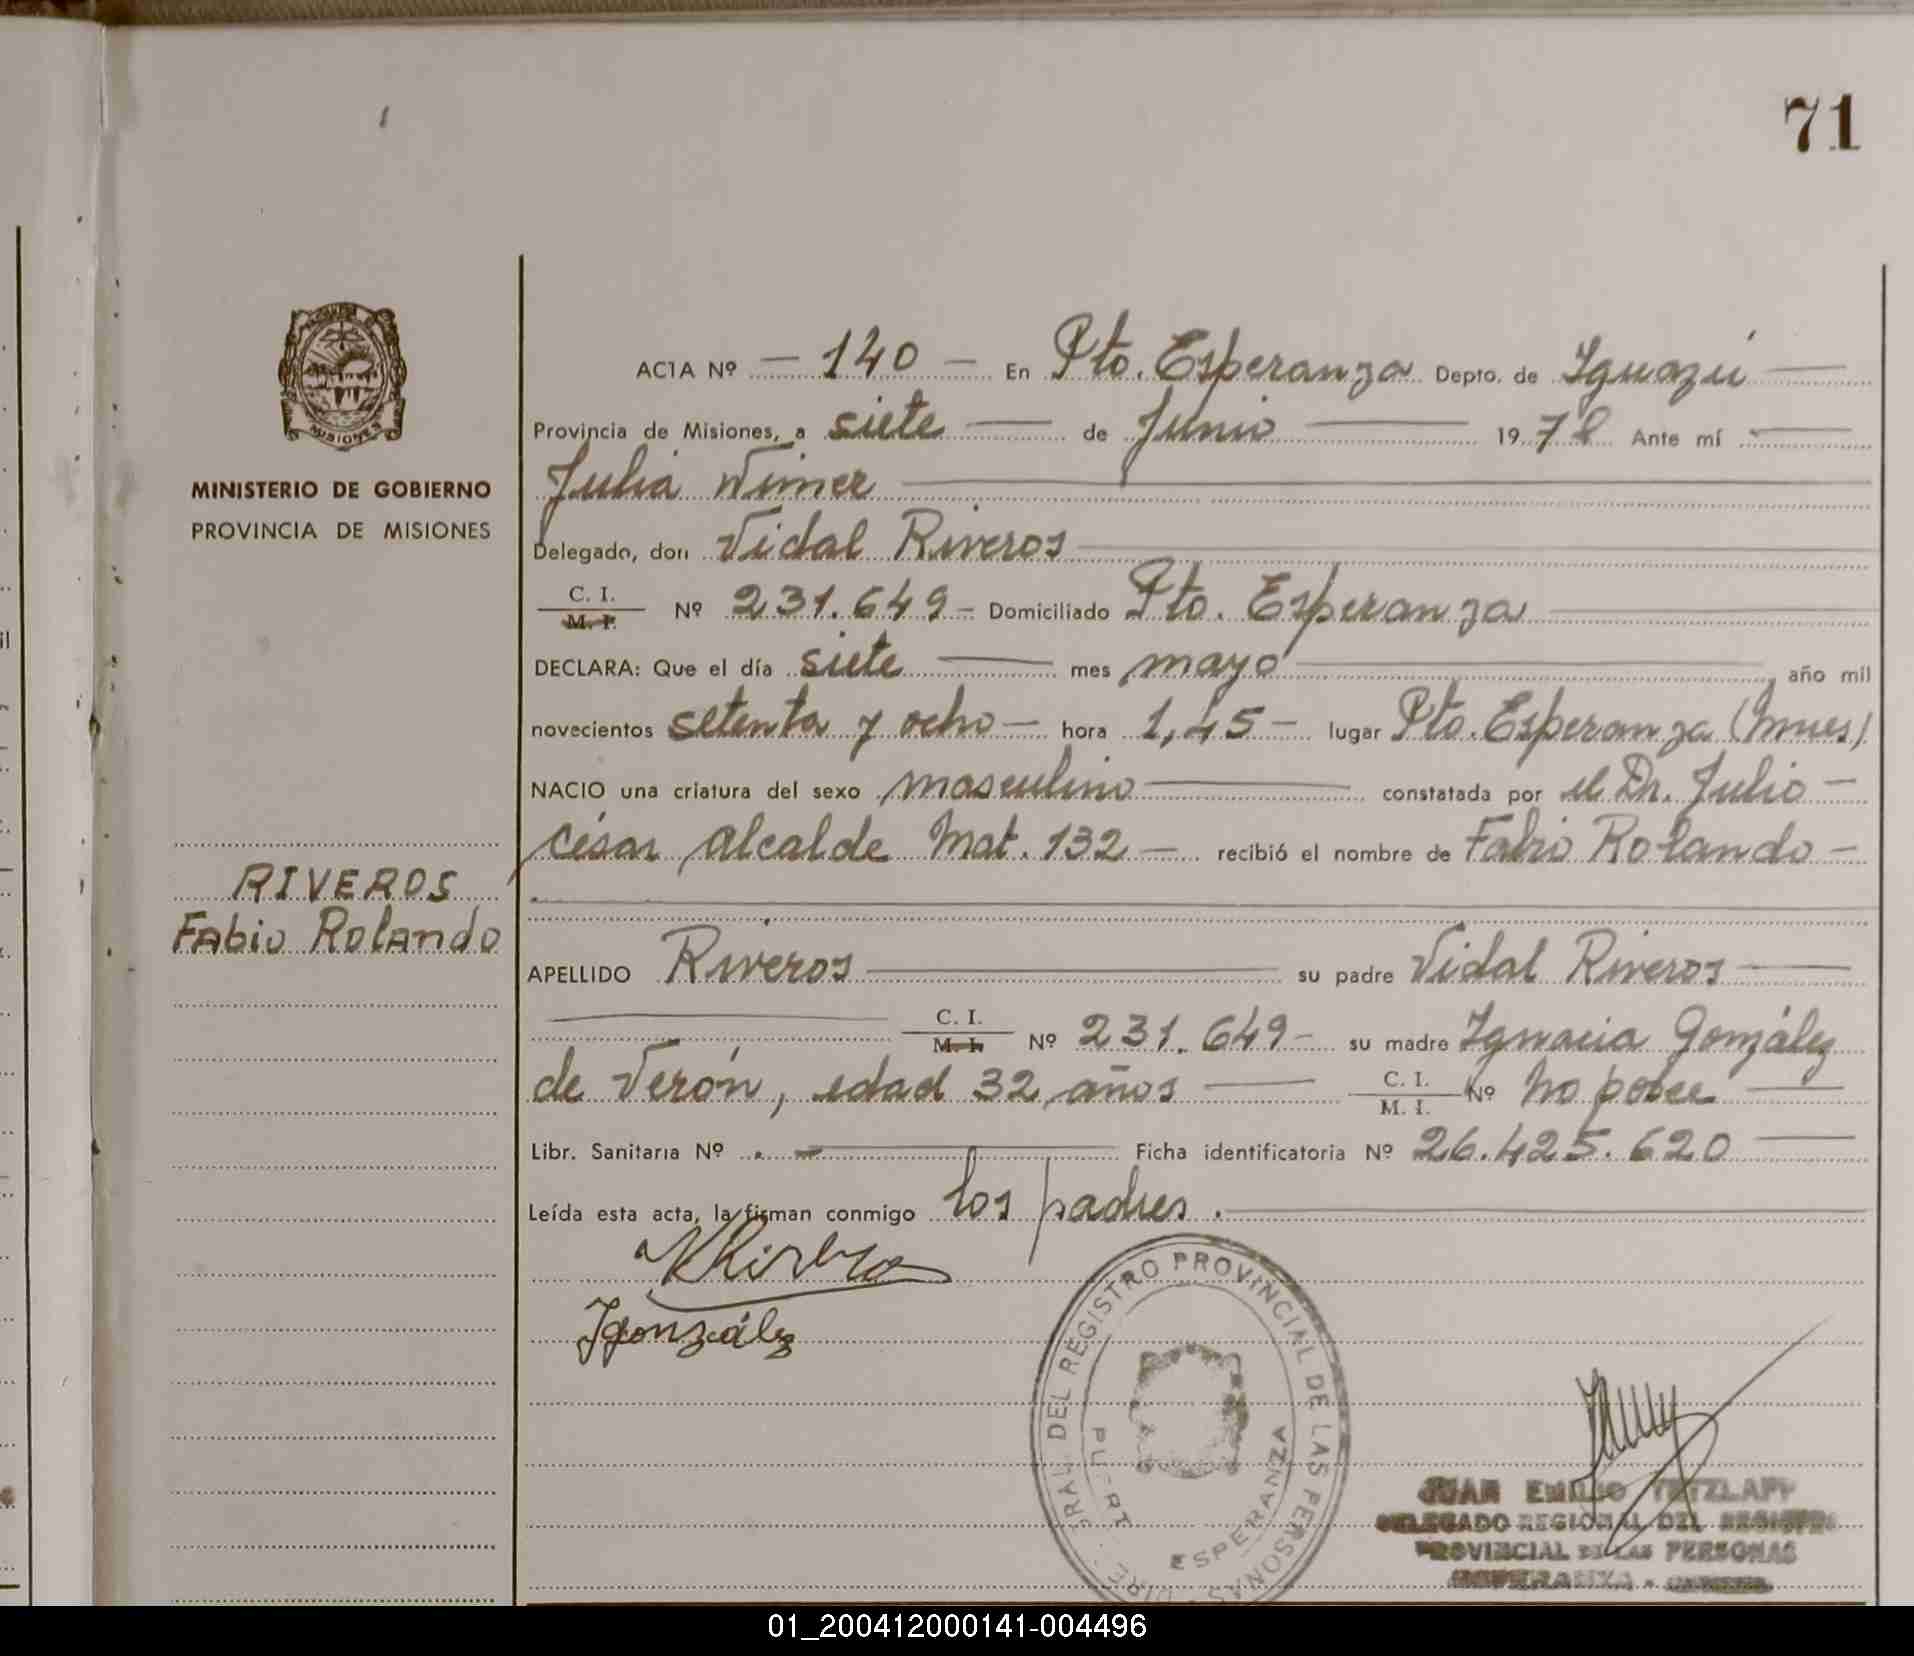 71
MISIONES
MINISTERIO DE GOBIERNO
PROVINCIA DE MISIONES
RIVEROS
Fabio Rolando
ACTA Nº — 140 — En Pto. Esperanza Depto. de Iguazú
Provincia de Misiones, a siete de Junio 1978 Ante mí
Julia Wimer
Delegado, don Vidal Riveros
C. I.
M. I. Nº 231.649 - Domiciliado Pto. Esperanza
DECLARA: Que el día siete mes mayo año mil
novecientos setenta y ocho — hora 1,45 — lugar Pto. Esperanza (Mnes)
NACIO una criatura del sexo masculino constatada por el Dr. Julio —
César Alcalde Mat. 132 — recibió el nombre de Fabio Rolando —
APELLIDO Riveros su padre Vidal Riveros
C. I.
M. I. Nº 231.649 - su madre Ignacia González
de Verón, edad 32 años C. I.
M. I. Nº no posee
Libr. Sanitaria Nº Ficha identificatoria Nº 26.425.620
Leída esta acta, la firman conmigo los padres.
IGonzález
DEL REGISTRO PROVINCIAL DE LAS PERSONAS
ESPERANZA
JUAN EMILIO TETZLAFF
DELEGADO REGIONAL DEL REGISTRO
PROVINCIAL DE LAS PERSONAS
ESPERANZA
01_200412000141-004496